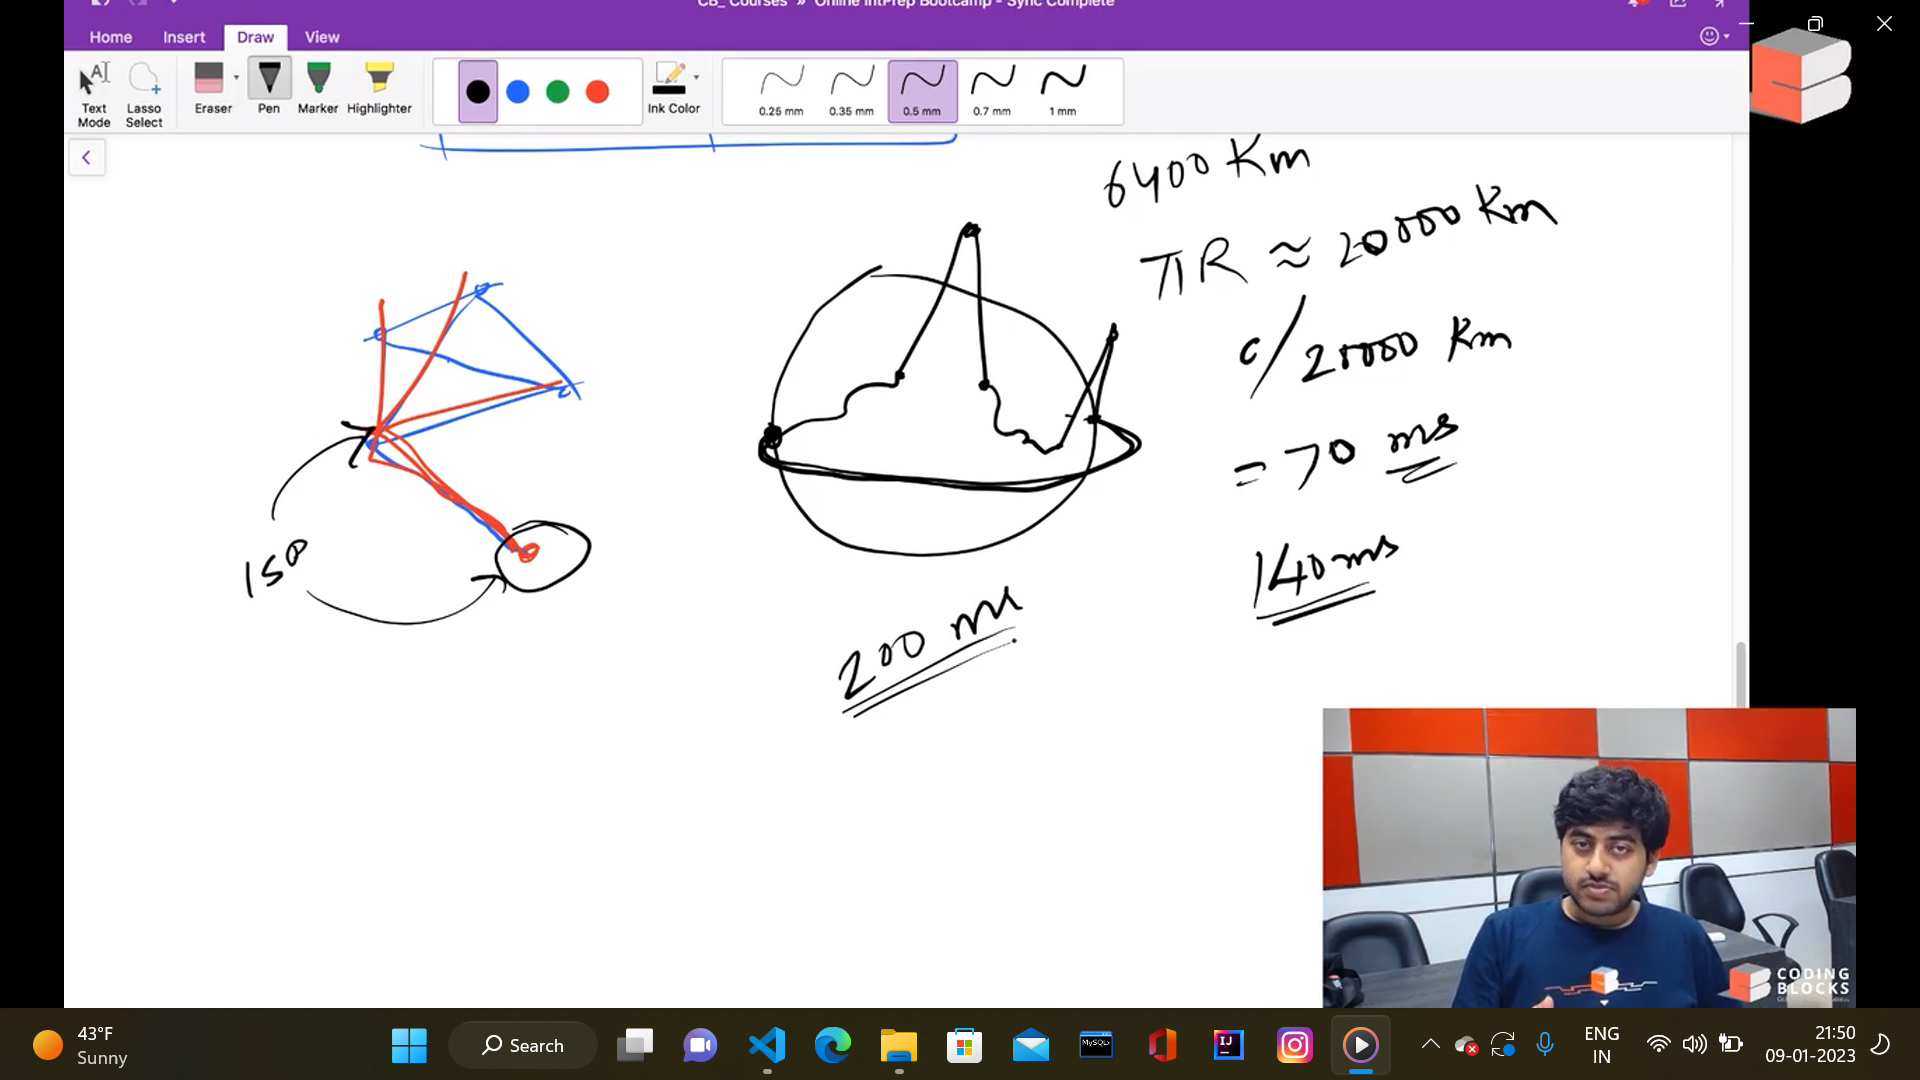 CB_ Courses » Online IntPrep Bootcamp - Sync Complete
Home Insert Draw View
Text Mode
Lasso Select
Eraser
Pen
Marker
Highlighter
Ink Color
0.25 mm
0.35 mm
0.5 mm
0.7 mm
1 mm
6400 Km
πR ≈ 20000 Km
c/20000 Km
= 70 ms
140 ms
150
200 ms
CODING
BLOCKS
43°F
Sunny
Search
MySQL
IJ
ENG
IN
21:50
09-01-2023